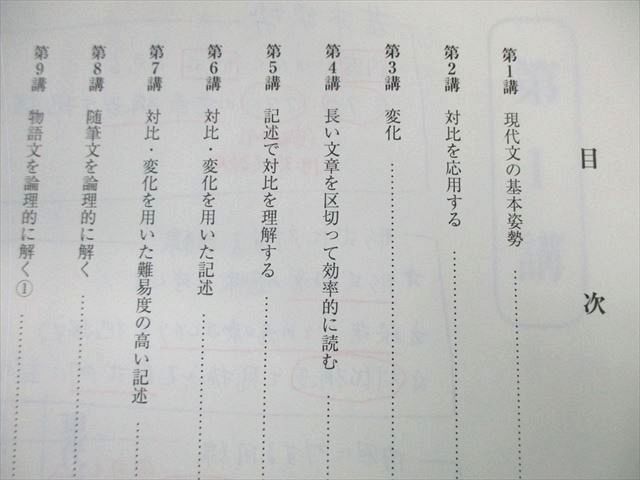 目次
第1講 現代文の基本姿勢
第2講 対比を応用する
第3講 変化
第4講 長い文章を区切って効率的に読む
第5講 記述で対比を理解する
第6講 対比・変化を用いた記述
第7講 対比・変化を用いた難易度の高い記述
第8講 随筆文を論理的に解く
第9講 物語文を論理的に解く①